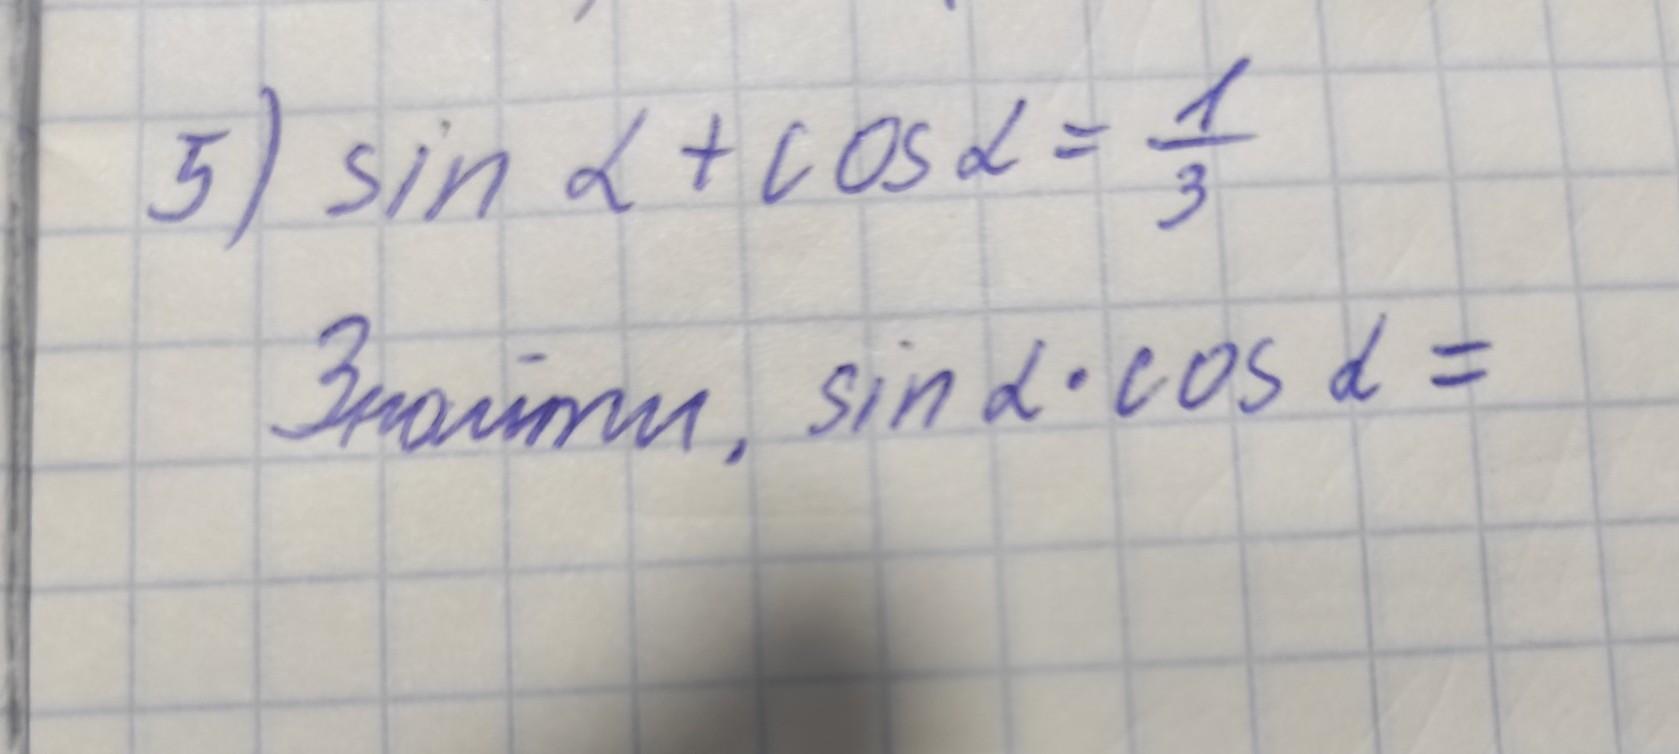 5) sin α + cos α = 1/3
Знайти, sin α · cos α =